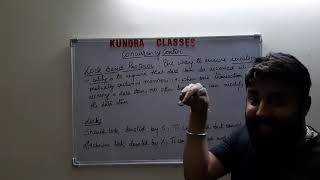 KUNDRA CLASSES
Concurrency Control
Lock Based Protocol : One way to ensure
is to require that data item be accessed in
mutually exclusive manner, when one transaction
access a data item, no other can modify
the data item
Locks
Shared lock: denoted by S, Ti can but cannot
Exclusive lock: denoted by X, Ti can